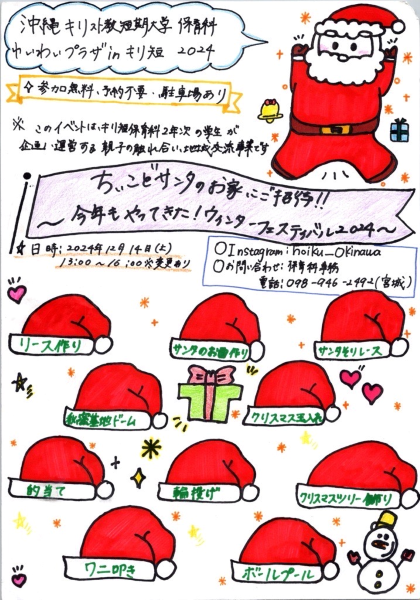 沖縄キリスト教短期大学 保育科
わいわいプラザ in キリ短 2024
☆参加無料・予約不要・駐車場あり
※ このイベントは、キリ短保育科2年次の学生が
企画・運営する親子の触れ合い、地域交流事業です
ちぃこどサンタのお家にご招待!!
～今年もやってきた!ウィンターフェスティバル2024～
☆日時:2024年12月14日(土)
13:00～16:00※変更あり
○Instagram:hoiku_okinawa
○お問い合わせ:保育科事務
電話:098-946-2492(宮城)
リース作り
サンタのお歯作り
サンタそりレース
秘密基地ドーム
クリスマス玉入れ
的当て
輪投げ
クリスマスツリー飾作り
ワニ叩き
ボールプール